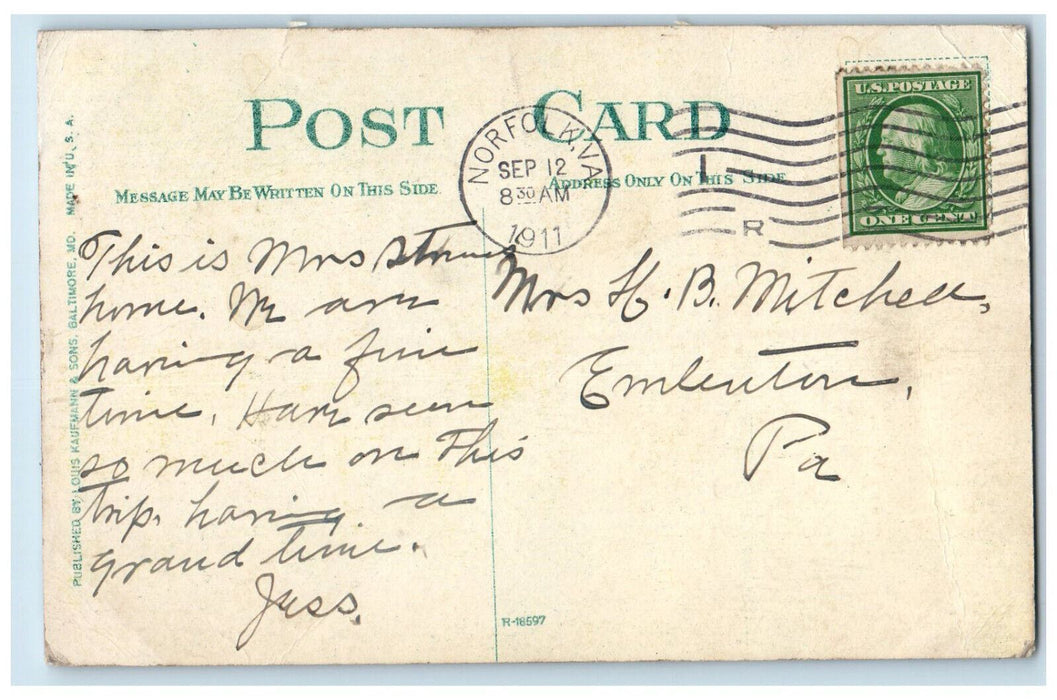 POST CARD
MESSAGE MAY BE WRITTEN ON THIS SIDE
ADDRESS ONLY ON THIS SIDE
NORFOLK, VA.
SEP 12
8 30 AM
1911
I
R
U.S. POSTAGE
ONE CENT
PUBLISHED BY LOUIS KAUFMANN & SONS, BALTIMORE, MD. MADE IN U. S. A.
This is Mrs
home. We are
having a fine
time. Have seen
so much on this
trip. having a
grand time.
Jess.
Mrs H. B. Mitchell,
Emlenton,
Pa
R-18597